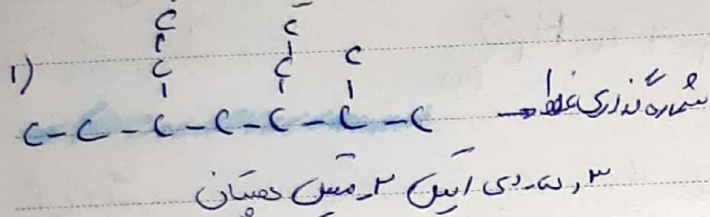 C C
C C C
۱) C-C-C-C-C-C-C → شماره گذاری غلط
۳,۵-دی اتیل ۲-متیل هپتان